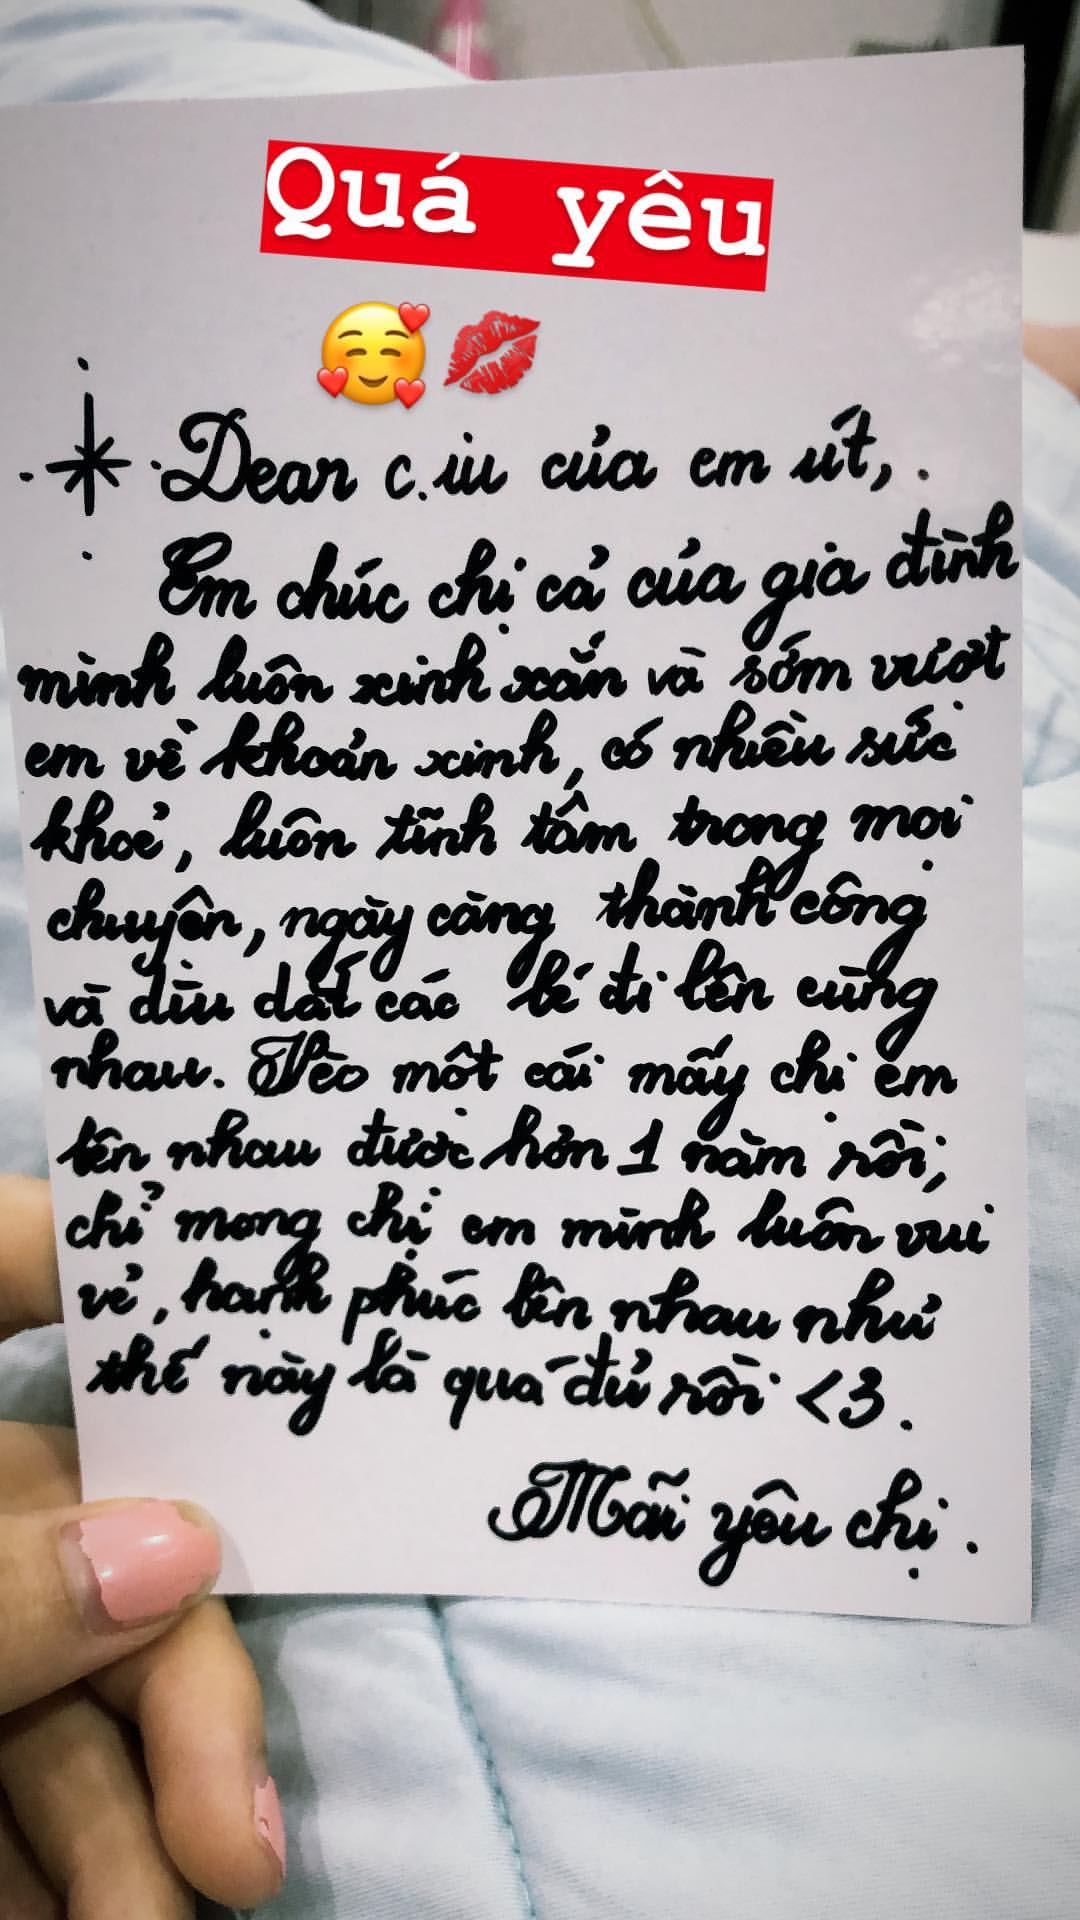 Quá yêu
Dear c.iu của em út,
Em chúc chị cả của gia đình
mình luôn xinh xắn và sớm vượt
em về khoản xinh, có nhiều sức
khoẻ, luôn tĩnh tâm trong mọi
chuyện, ngày càng thành công
và dìu dắt các bé đi lên cùng
nhau. Vèo một cái mấy chị em
bên nhau được hơn 1 năm rồi,
chỉ mong chị em mình luôn vui
vẻ, hạnh phúc bên nhau như
thế này là quá đủ rồi <3.
Mãi yêu chị.